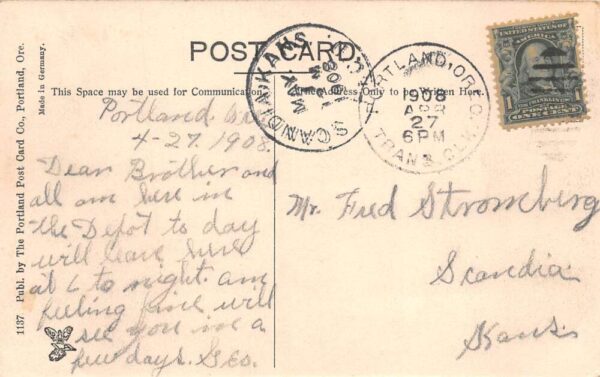 POST CARD.
This Space may be used for Communication.
The Address Only to be Written Here.
1137 Publ. by The Portland Post Card Co., Portland, Ore.
Made in Germany.
SCANDIA KANS.
MAY
1908
REC'D.
PORTLAND, ORE.
1908
APR
27
6 PM
TRANS. CLK.
UNITED STATES OF AMERICA
FRANKLIN
1
ONE CENT
Portland Ore
4-27. 1908.
Dear Brother and
all am here in
the Depot to day
will leave here
at 6 to night. am
feeling fine will
see you in a
few days. Geo.
Mr. Fred Stromberg
Scandia
Kans.